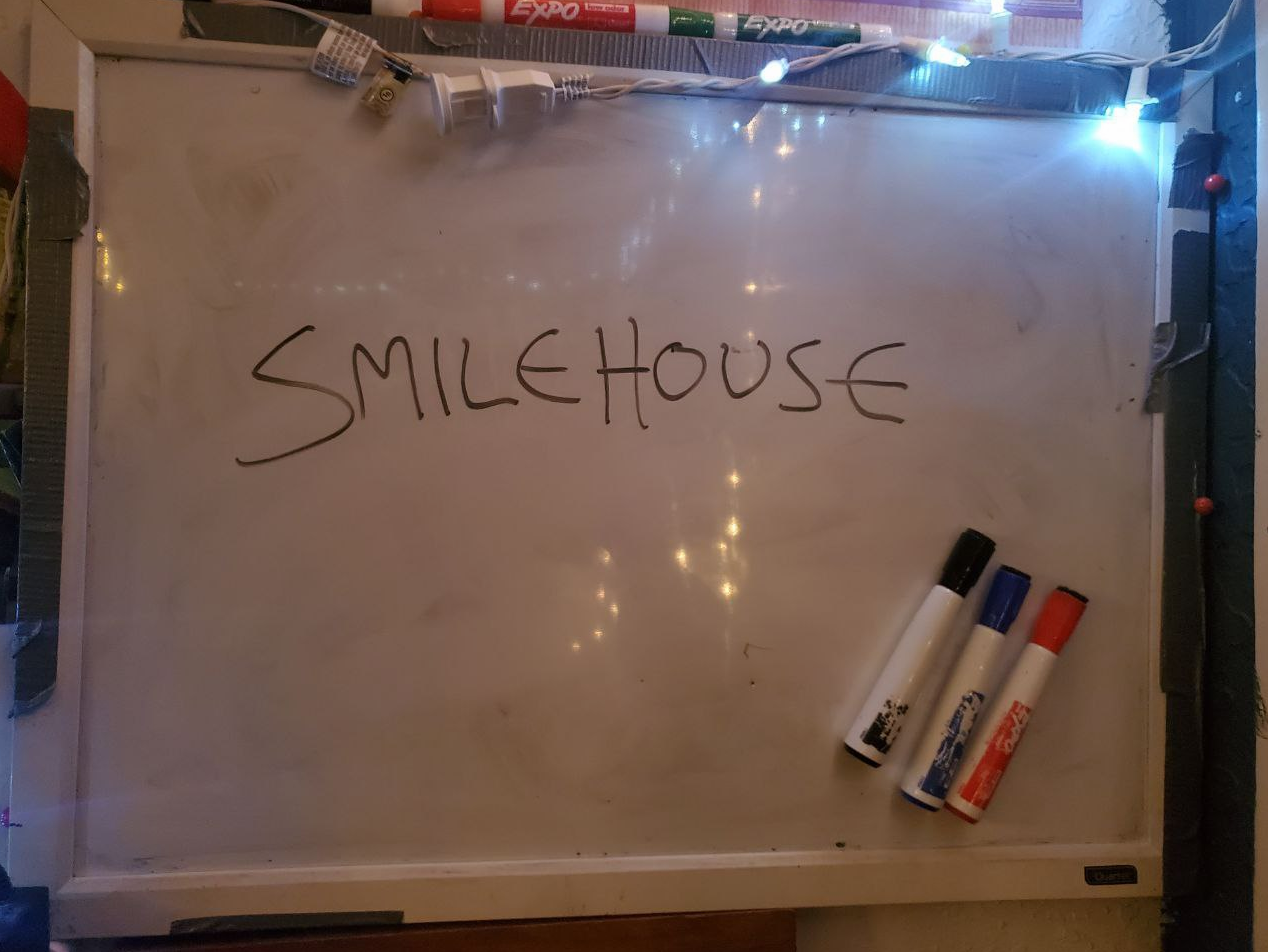 EXPO low odor
EXPO
SMILEHOUSE
EXPO
Quartet